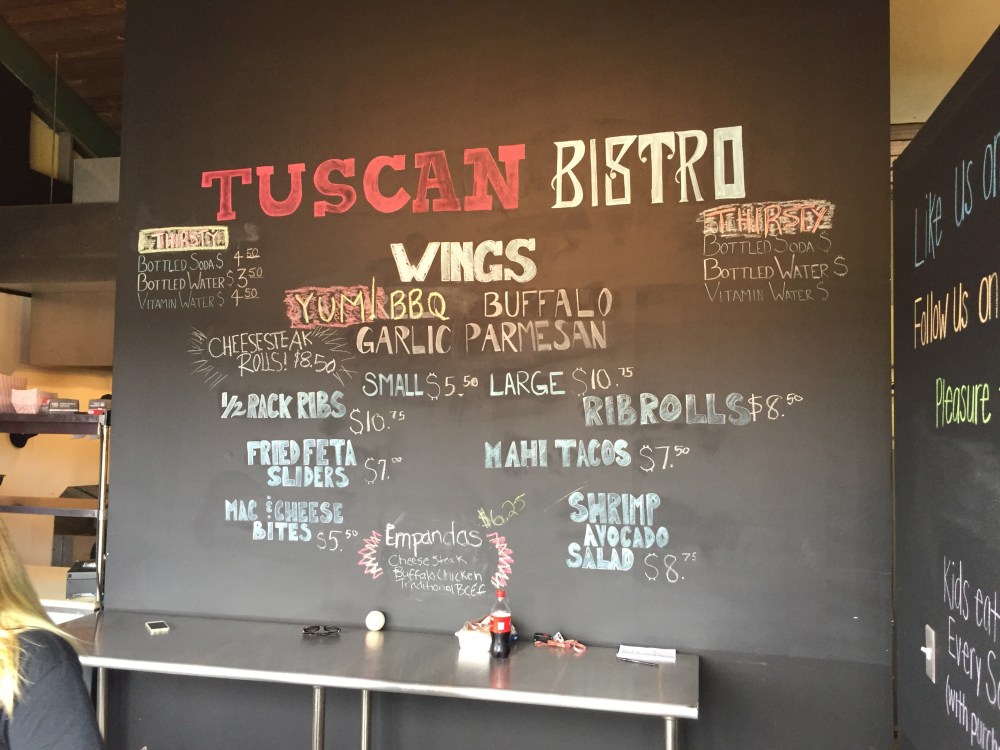 TUSCAN BISTRO
THIRSTY
BOTTLED SODA $ 4.50
BOTTLED WATER $ 3.50
VITAMIN WATER $ 4.50
THIRSTY
BOTTLED SODA $
BOTTLED WATER $
VITAMIN WATER $
WINGS
YUM! BBQ BUFFALO
GARLIC PARMESAN
CHEESESTEAK
ROLLS! $8.50
SMALL $5.50 LARGE $10.75
1/2 RACK RIBS $10.75
RIB ROLLS $8.50
FRIED FETA
SLIDERS $7.00
MAHI TACOS $7.50
MAC & CHEESE
BITES $5.50
SHRIMP
AVOCADO
SALAD $8.75
$6.25
Empandas
Cheese Steak
Buffalo Chicken
Traditional BEEf
Like us on
Follow us on
Pleasure
Kids eat
Every
(with